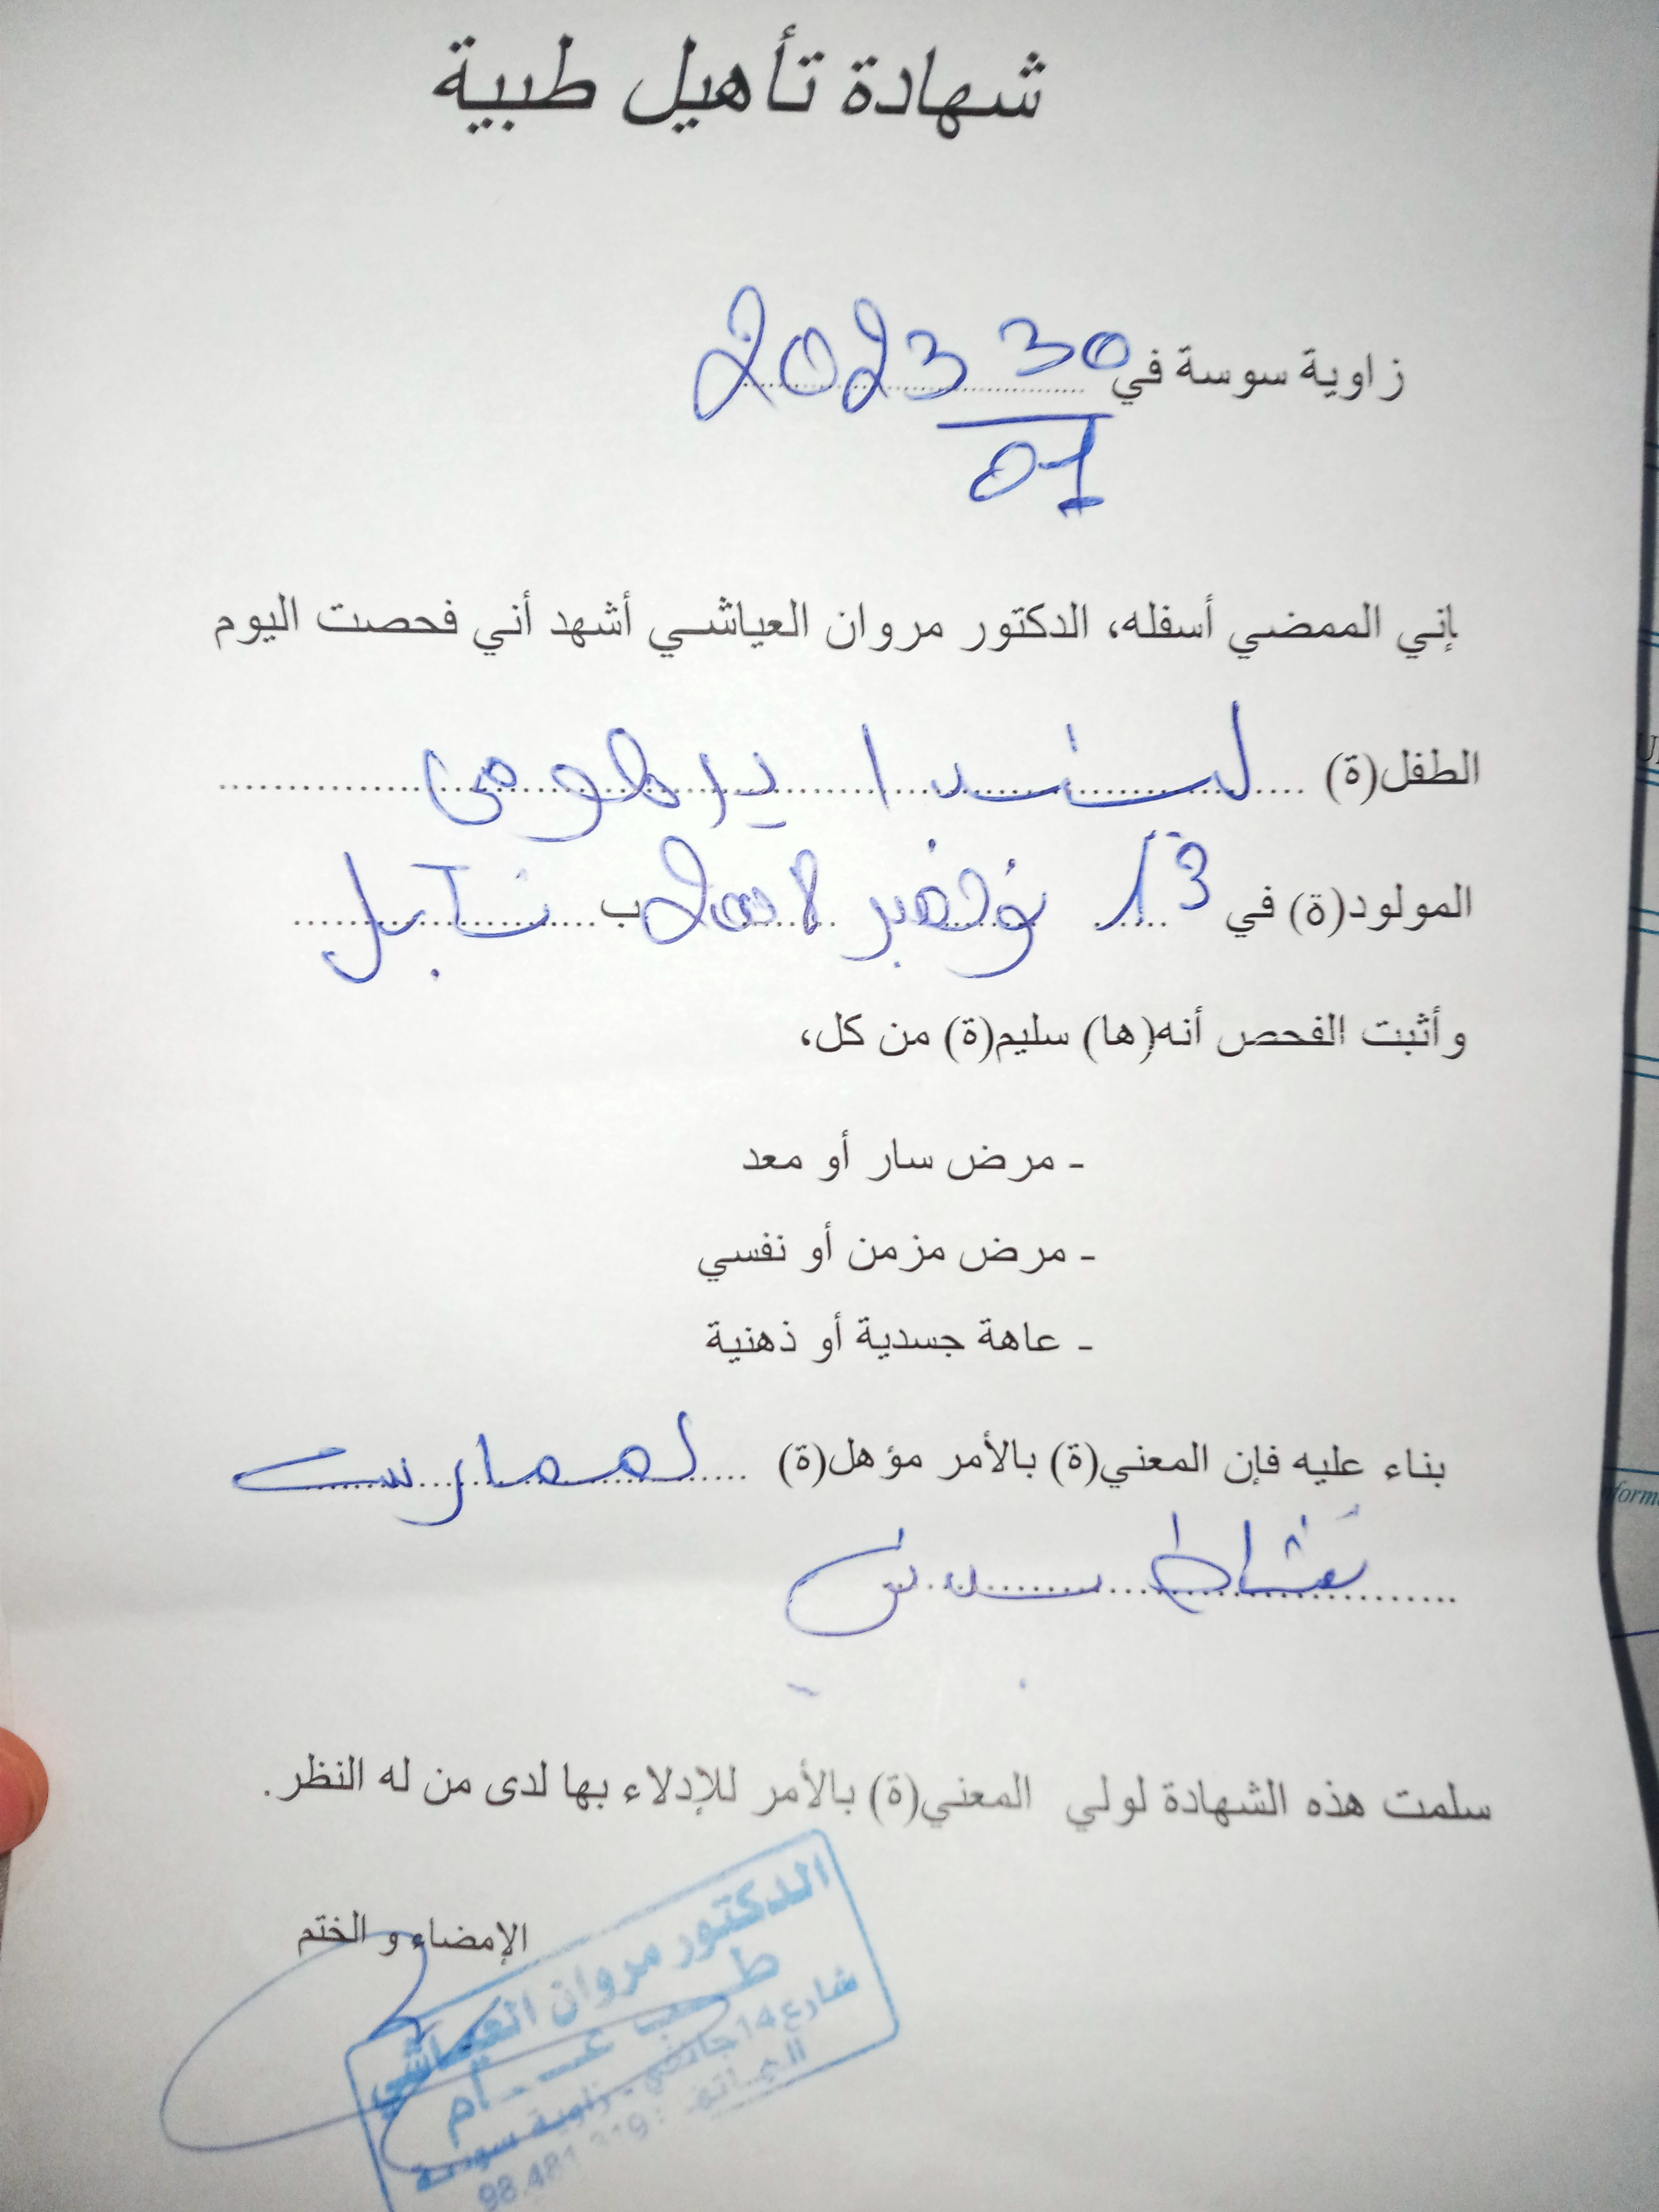 شهادة تأهيل طبية
زاوية سوسة في 30 2023
01
إني الممضي أسفله، الدكتور مروان العياشي أشهد أني فحصت اليوم
الطفل(ة) لندا
المولود(ة) في 13 نوفمبر 2008 ب نابل
و أثبت الفحص أنه(ها) سليم(ة) من كل،
- مرض سار أو معد
- مرض مزمن أو نفسي
- عاهة جسدية أو ذهنية
بناء عليه فإن المعني(ة) بالأمر مؤهل(ة) لممارست
نشاط بدني
سلمت هذه الشهادة لولي المعني(ة) بالأمر للإدلاء بها لدى من له النظر.
الإمضاء و الختم
الدكتور مروان العياشي
طب عام
شارع 14 جانفي - زاوية سوسة
الهاتف :